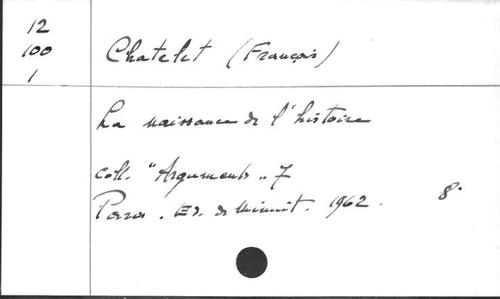 12
100
1
Chatelet (François)
La naissance de l'histoire
Coll. "Arguments" 7
Paris. Ed. de Minuit. 1962. 8°